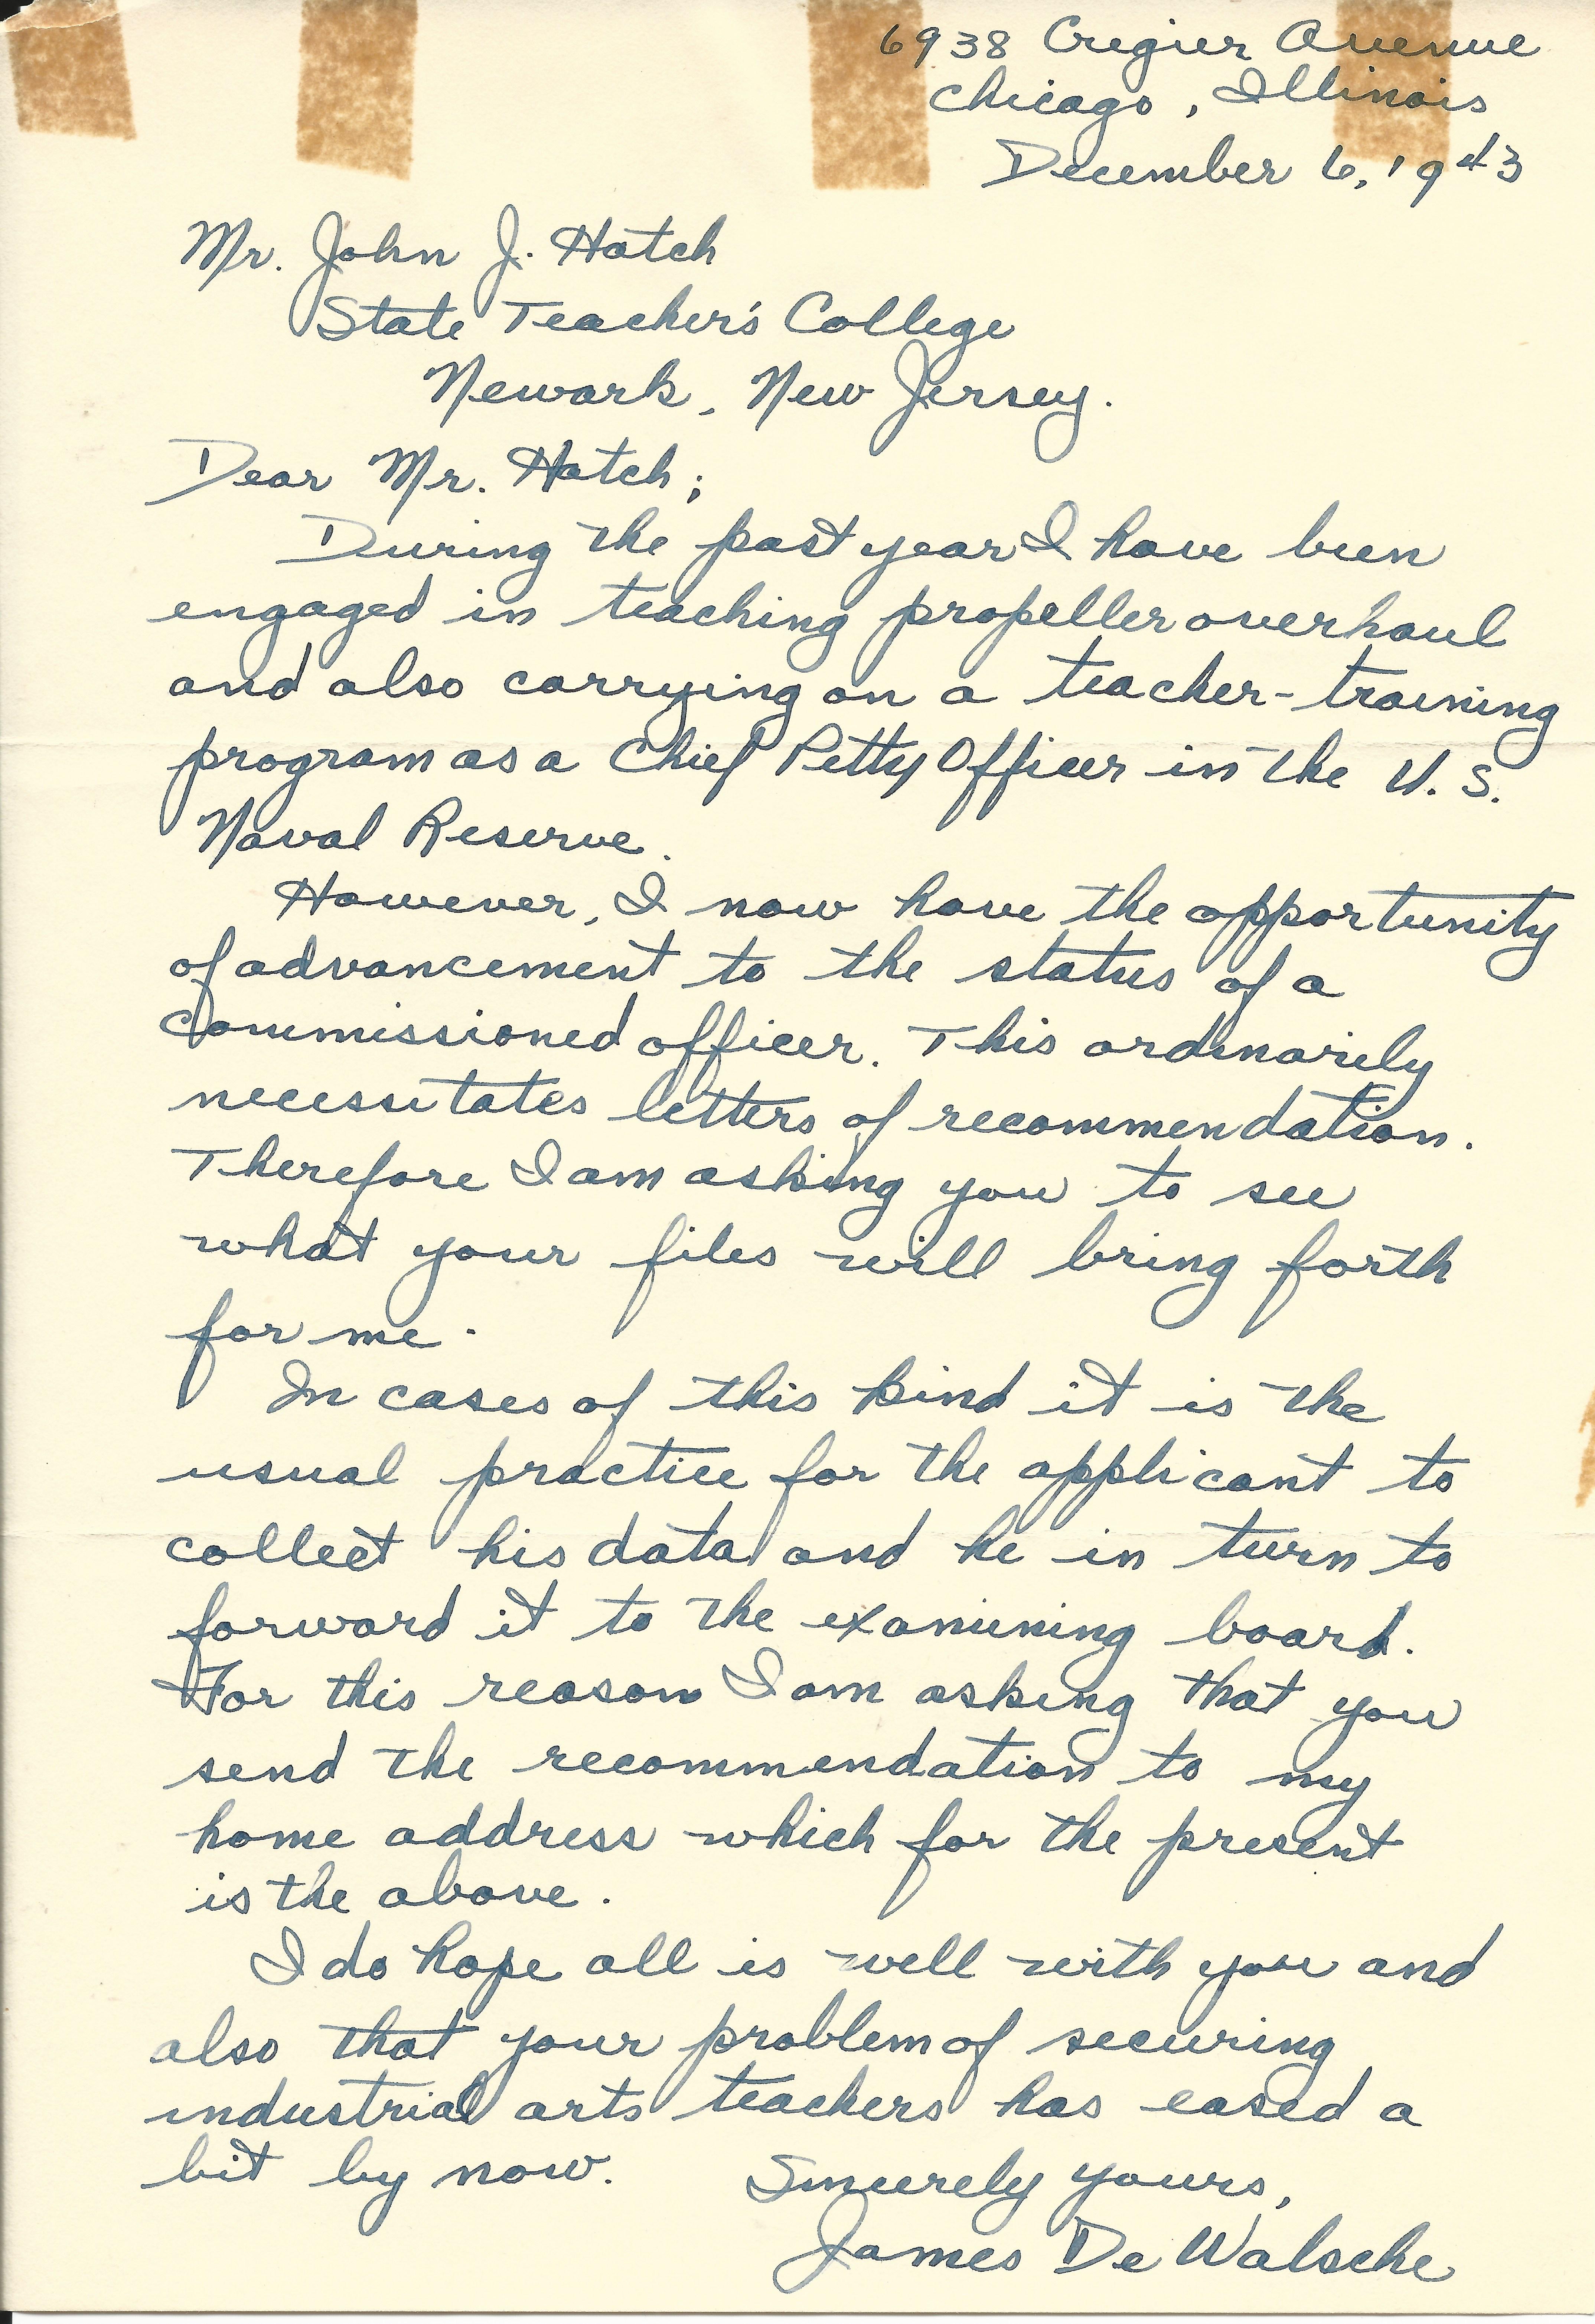 6938 Cregier Avenue
Chicago, Illinois
December 6, 1943
Mr. John J. Hatch
State Teacher's College
Newark, New Jersey.
Dear Mr. Hatch;
During the past year I have been
engaged in teaching propeller overhaul
and also carrying on a teacher-training
program as a Chief Petty Officer in the U. S.
Naval Reserve.
However, I now have the opportunity
of advancement to the status of a
commissioned officer. This ordinarily
necessitates letters of recommendation.
Therefore I am asking you to see
what your files will bring forth
for me.
In cases of this kind it is the
usual practice for the applicant to
collect his data and he in turn to
forward it to the examining board.
For this reason I am asking that you
send the recommendation to my
home address which for the present
is the above.
I do hope all is well with you and
also that your problem of securing
industrial arts teachers has eased a
bit by now.
Sincerely yours,
James De Walsche